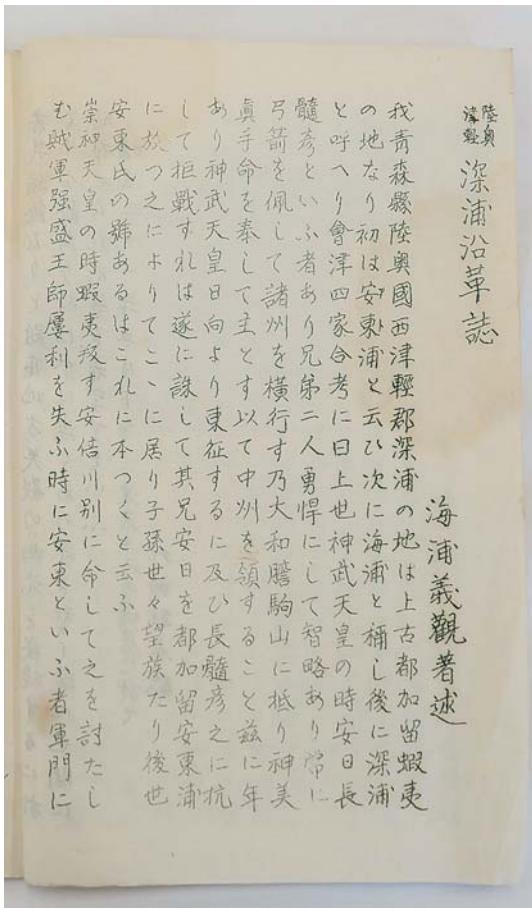 陸奥津輕 深浦沿革誌
海浦義觀著述
我青森縣陸奥國西津輕郡深浦の地は上古都加留蝦夷
の地なり初は安東浦と云ひ次に海浦と稱し後に深浦
と呼へり會津四家合考に曰上世神武天皇の時安日長
髓彦といふ者あり兄弟二人勇悍にして智略あり常に
弓箭を佩して諸州を横行す乃大和膽駒山に抵り神美
眞手命を奉して主とす以て中州を領すること茲に年
あり神武天皇日向より東征するに及ひ長髓彦之に抗
して拒戰すれは遂に誅して其兄安日を都加留安東浦
に放つ之によりてこゝに居り子孫世々望族たり後世
安東氏の號あるはこれに本つくと云ふ
崇神天皇の時蝦夷叛す安倍川別に命して之を討たし
む賊軍强盛王師屢利を失ふ時に安東といふ者軍門に